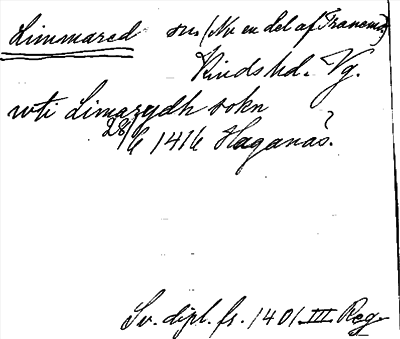 Limmared sn. (Nu en del af Tranemo)
Kinds hd. Vg.
wti Limarydh sokn
28/6 1416 Haganäs?
Sv. dipl. fr. 1401 III Reg.